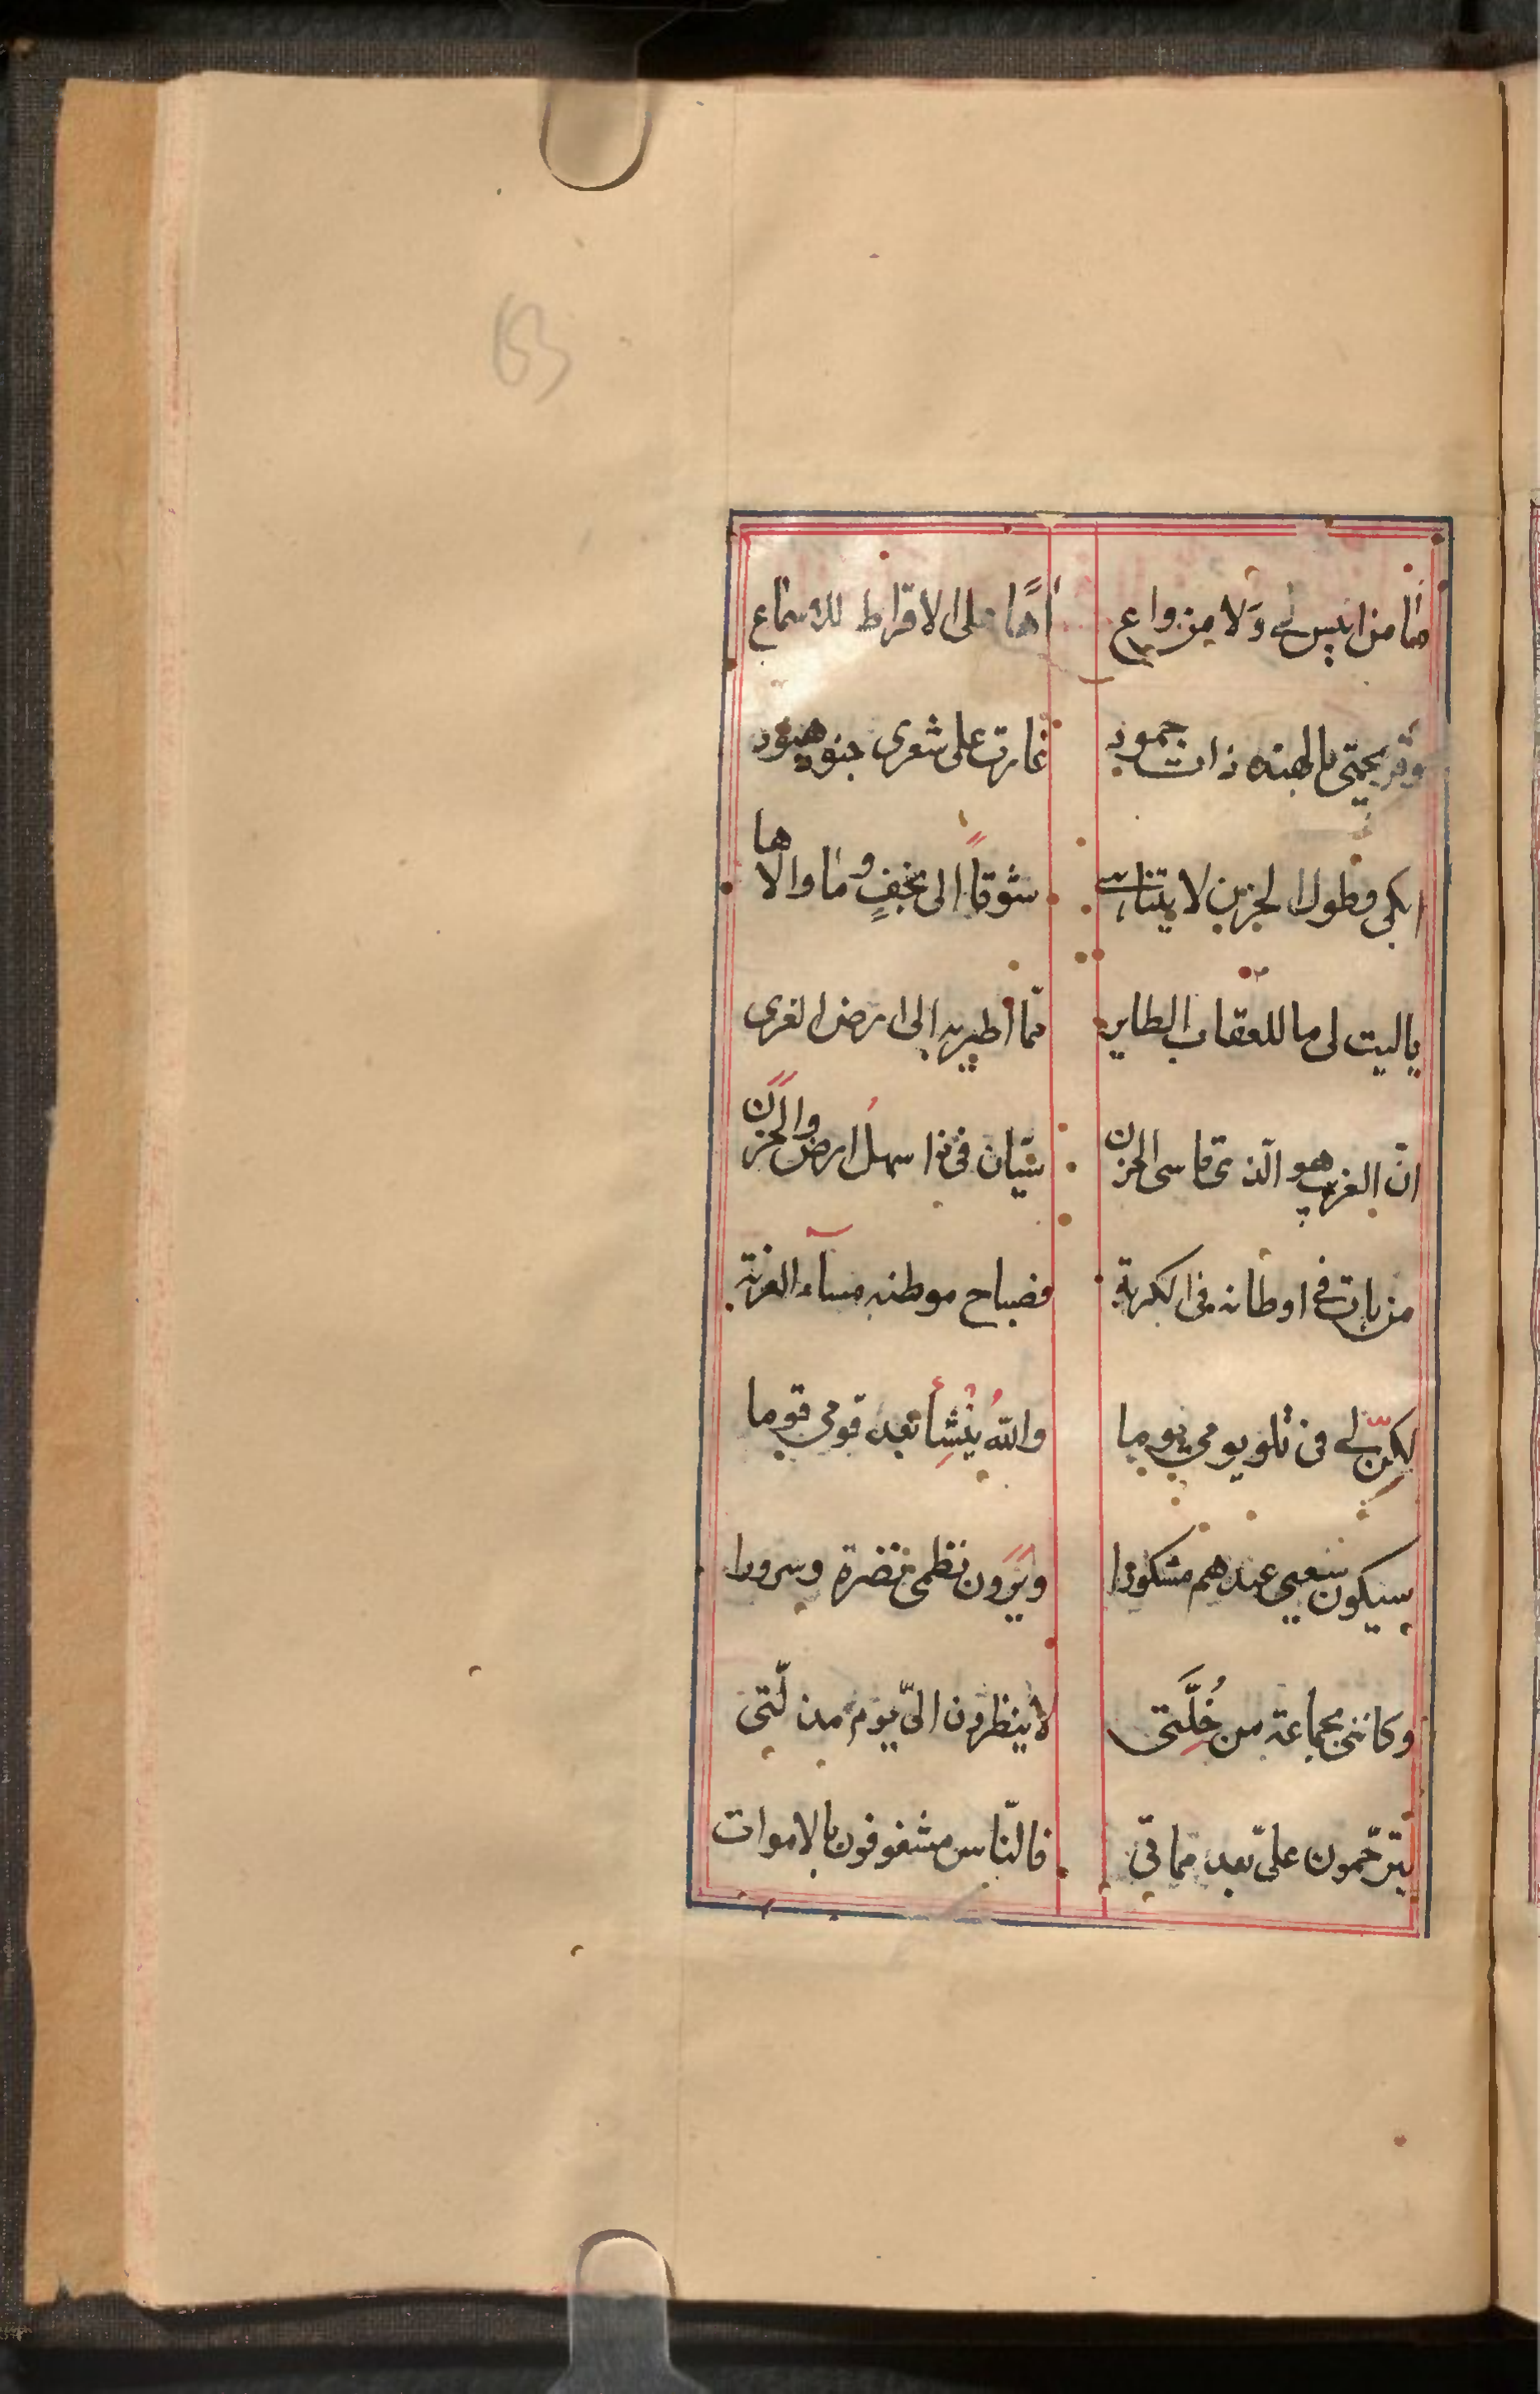 ما من انيس لى وَلا من واع آهًا على الاقراط للاسماع
وقريحتى بالهند ذات جمود غارت على شعرى جنود هنود
ابكى وطول الحزن لا يتناسى شوقاً الى نجفٍ وما والاها
ياليت لى ما للعقاب الطاير ممّا اطير به الى ارض الغرى
انّ الغريب هو الّذى قاسى الحزن سيّان فى ذا سهل ارض والحَزَن
من بات فى اوطانه فى الكربة فصباح موطنه مسآء الغربة
لكنّ لى فى تلو يومى يوما واللهُ يُنْشِأُ بعد قومى قوما
سيكون سعيى عندهم مشكورا ويَرَون نظمى نضرة وسرورا
وكاننى بجماعة من خُلَّتى لا ينظرون الىّ يوم مذلّتى
يترحّمون علىّ بعد مماتى فالنّاس مشغوفون بالاموات